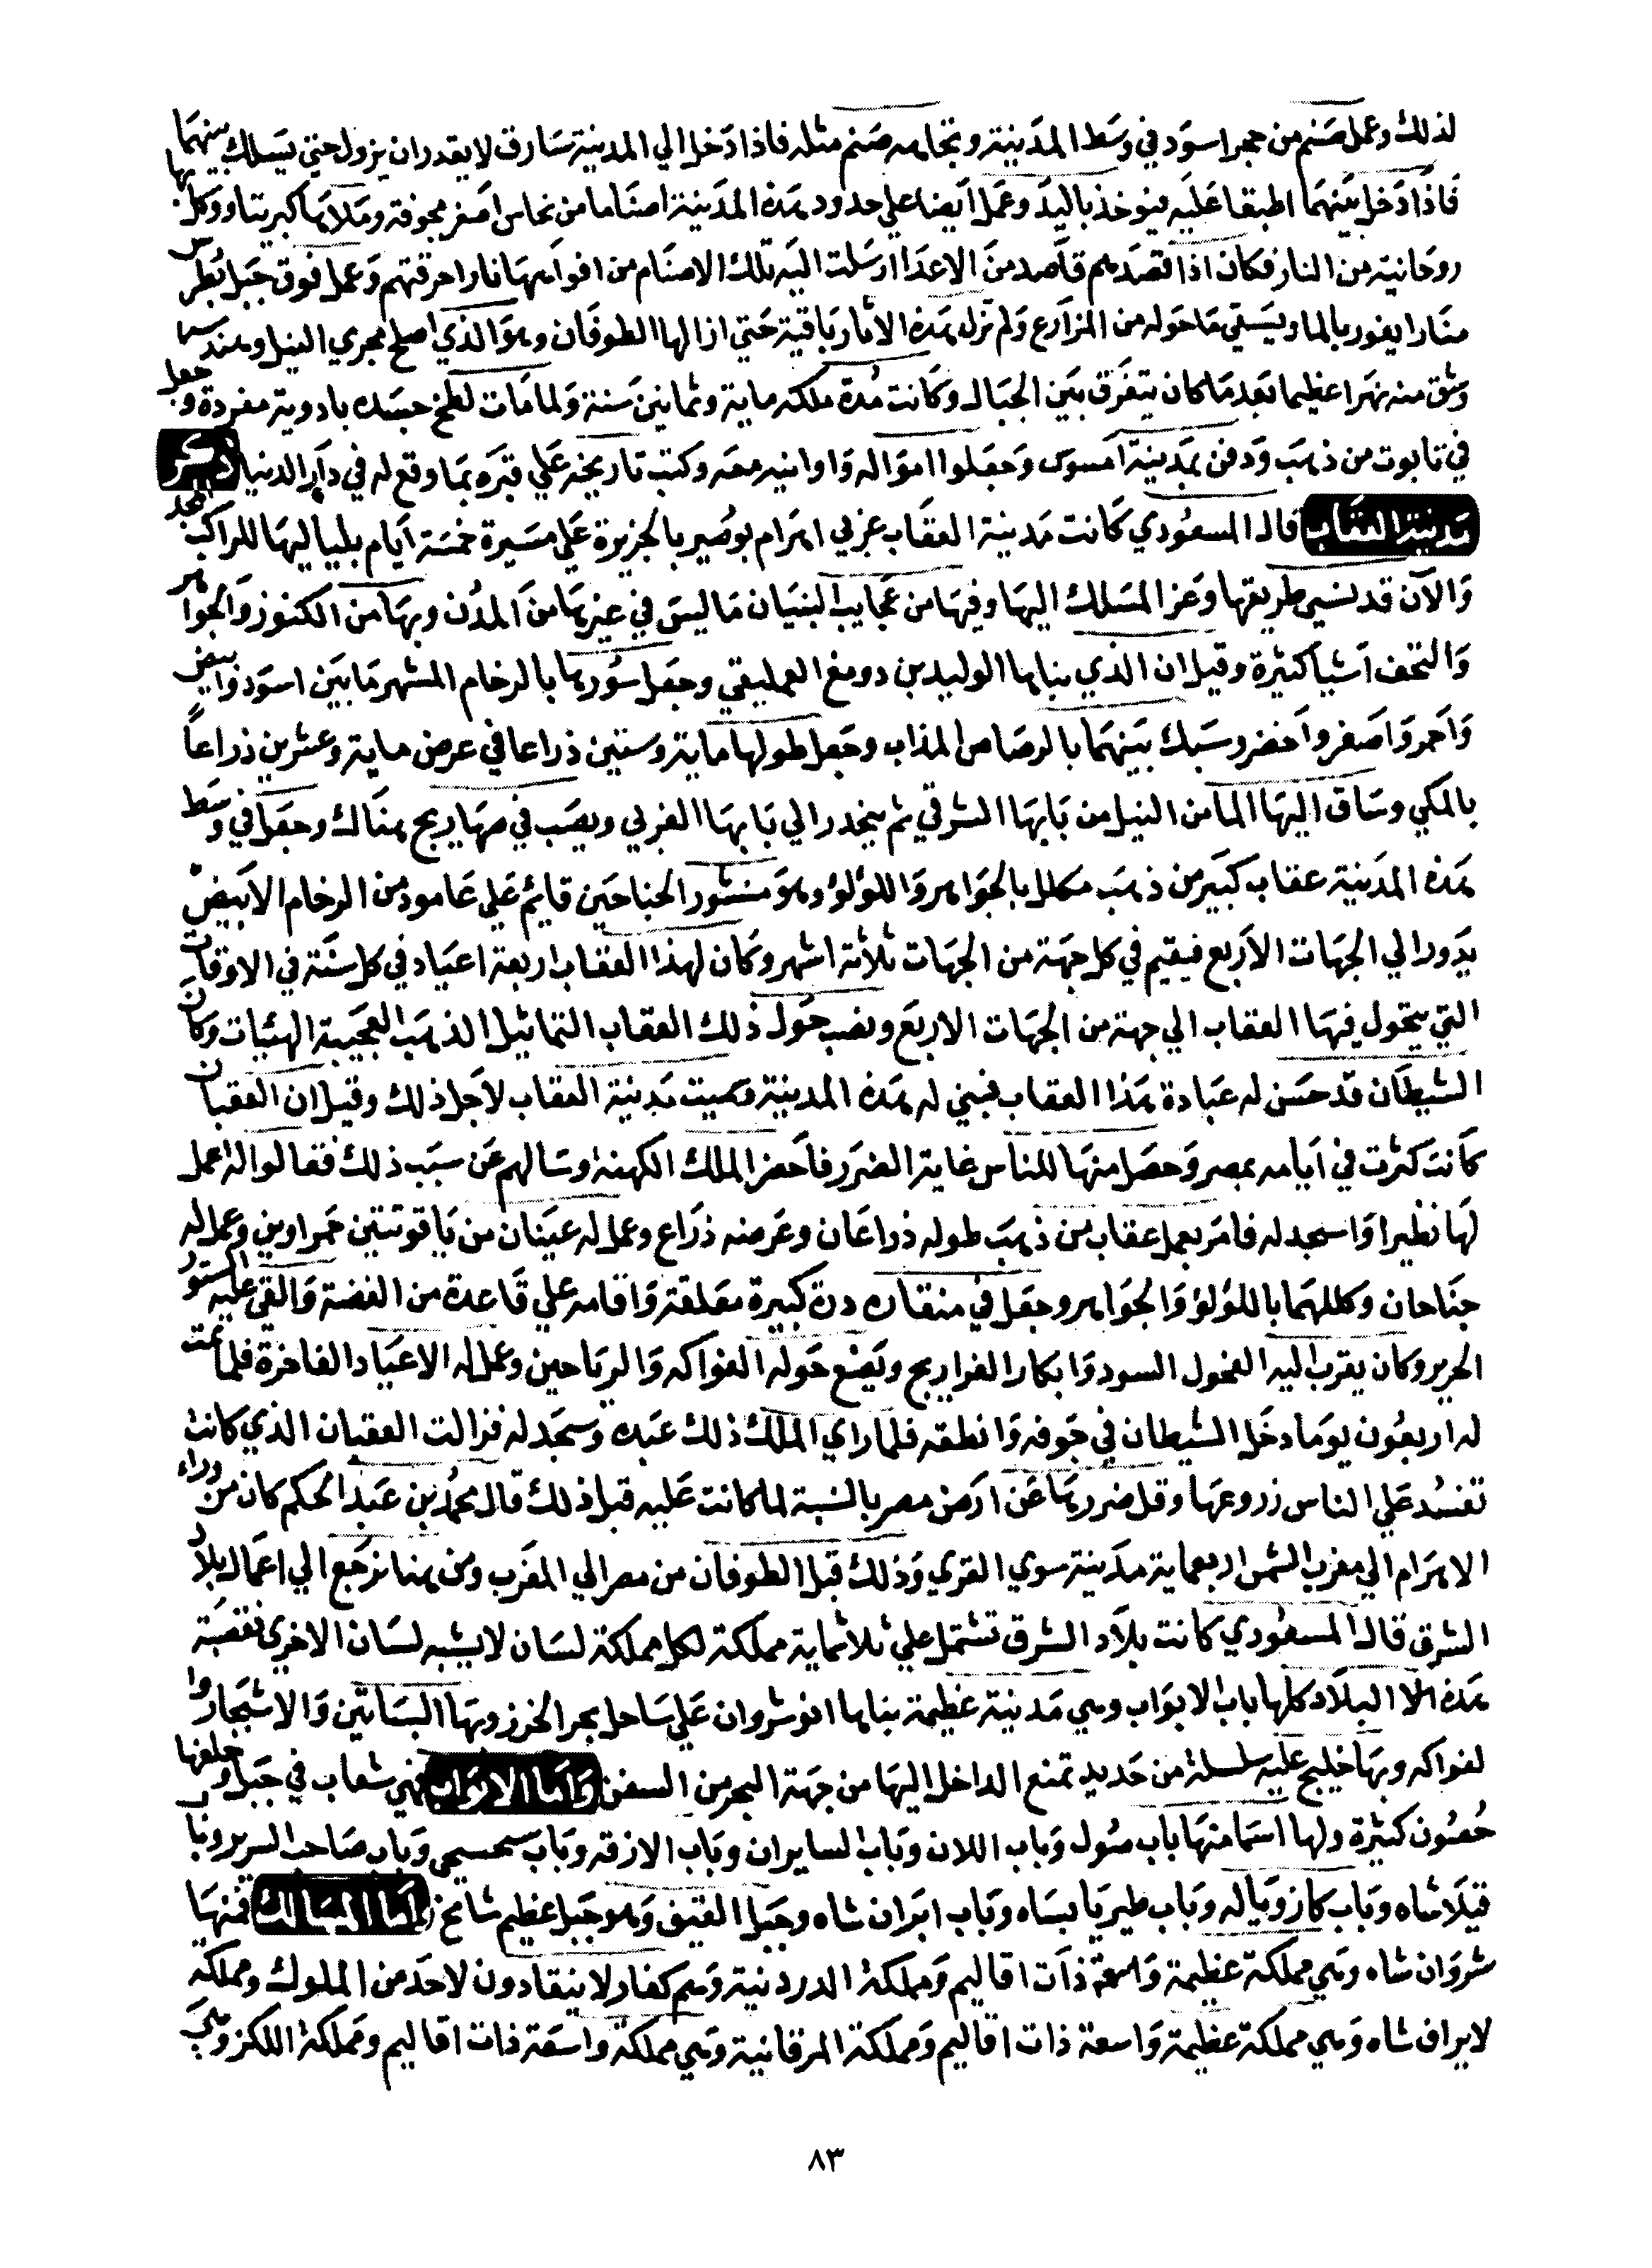 لذلك وعمل صنم من حجر اسود في وسط المدينة وتجاهه صنم مثله فاذا دخل الي المدينة سارق لا يقدر ان يزول حتي يسلك بينهما
فاذا دخل بينهما اطبقا عليه فيوخذ باليد وعمل ايضا علي حدود هذه المدينة اصناما من نحاس اصفر مجوفة وملاها كبريتا ووكل بها
روحانية من النار فكان اذا قصدهم قاصد من الاعدا ارسلت اليه تلك الاصنام من افواهها نارا احرقتهم وعمل فوق جبل بطرس
منارا يفور بالما ويسقي ما حوله من المزارع ولم تزل هذه الاثار باقية حتي ازالها الطوفان وهو الذي اصلح مجري النيل وهندسها
وشق منه نهرا عظيما بعد ما كان يتفرق بين الجبال وكانت مدة ملكه ماية وثمانين سنة ولما مات لطخ جسده بادوية مفردة وجعل
في تابوت من ذهب ودفن بمدينة امسوس وجعلوا امواله واوانيه معه وكتب تاريخه علي قبره بما وقع له في دار الدنيا ذكر
مدينة العقاب قال المسعودي كانت مدينة العقاب غربي اهرام بوصير بالجزيرة علي مسيرة خمسة ايام بلياليها للراكب المجد
والآن قد نسي طريقها وعز المسلك اليها وفيها من عجايب البنيان ما ليس في غيرها من المدن وبها من الكنوز والجواهر
والتحف اشيا كثيرة وقيل ان الذي بناها الوليد بن دومغ العمليقي وجعل سورها بالرخام المشهر ما بين اسود وابيض
واحمر واصفر واخضر وسبك بينهما بالرصاص المذاب وجعل طولها ماية وستين ذراعا في عرض ماية وعشرين ذراعاً
بالمكي وساق اليها الما من النيل من بابها الشرقي ثم ينحدر الي بابها الغربي ويصب في صهاريج هناك وجعل في وسط
هذه المدينة عقاب كبير من ذهب مكلل بالجواهر واللؤلؤ وهو منشور الجناحين قايم علي عامود من الرخام الابيض
يدور الي الجهات الاربع فيقيم في كل جهة من الجهات ثلاثة اشهر وكان لهذا العقاب اربعة اعياد في كل سنة في الاوقات
التي يتحول فيها العقاب الي جهة من الجهات الاربع ونصب حول ذلك العقاب التماثيل الذهب العجيبة الهئيات وكان
الشيطان قد حسن له عبادة هذا العقاب فبني له هذه المدينة وسميت مدينة العقاب لاجل ذلك وقيل ان العقبان
كانت كثرت في ايامه بمصر وحصل منها للناس غاية الضرر فاحضر الملك الكهنة وسالهم عن سبب ذلك فقالوا له اعمل
لها نظيرا واسجد له فامر بعمل عقاب من ذهب طوله ذراعان وعرضه ذراع وعمل له عينان من ياقوتتين حمراوين وعمل له
جناحان وكللهما باللؤلؤ والجواهر وجعل في منقاره درة كبيرة معلقة واقامه علي قاعدة من الفضة والقي عليه الستور
الحرير وكان يقرب اليه الفحول السود وابكار الفراريج ويضع حوله الفواكه والرياحين وعمل له الاعياد الفاخرة فلما تمت
له اربعون يوما دخل الشيطان في جوفه وانطقه فلما راي الملك ذلك عبده وسجد له فزالت العقبان الذي كانت
تفسد علي الناس زروعها وقل ضررها عن ارض مصر بالنسبة لما كانت عليه قبل ذلك قال محمد بن عبد الحكم كان من وراء
الاهرام الي مغرب الشمس اربعماية مدينة سوي القري وذلك قبل الطوفان من مصر الي المغرب ومن هنا نرجع الي اعمال بلاد
الشرق قال المسعودي كانت بلاد الشرق تشتمل علي ثلاثماية مملكة لكل مملكة لسان لا يشبه لسان الاخري فقصبة
هذه البلاد كلها باب الابواب وهي مدينة عظيمة بناها انوشروان علي ساحل بحر الخزر وبها البساتين والاشجار وا
لفواكه وبها خليج عليه سلسلة من حديد تمنع الداخل اليها من جهة البحر من السفن واما الابواب فهي شعاب في جبل وخلفها
حصون كثيرة ولها اسما منها باب صول وباب اللان وباب لسايران وباب الازقه وباب سحسيحي وباب صاحب السرير وباب
قيلاشاه وباب كازويا له وباب طيريا بساه وباب ابران شاه وجبل القيق وهو جبل عظيم شامخ اما الممالك فمنها
شروان شاه وهي مملكة عظيمة واسعة ذات اقاليم ومملكة الدردنية وهم كفار لا ينقادون لاحد من الملوك ومملكة
لايران شاه وهي مملكة عظيمة واسعة ذات اقاليم ومملكة المرقانية وهي مملكة واسعة ذات اقاليم ومملكة اللكز وهي
٨٣